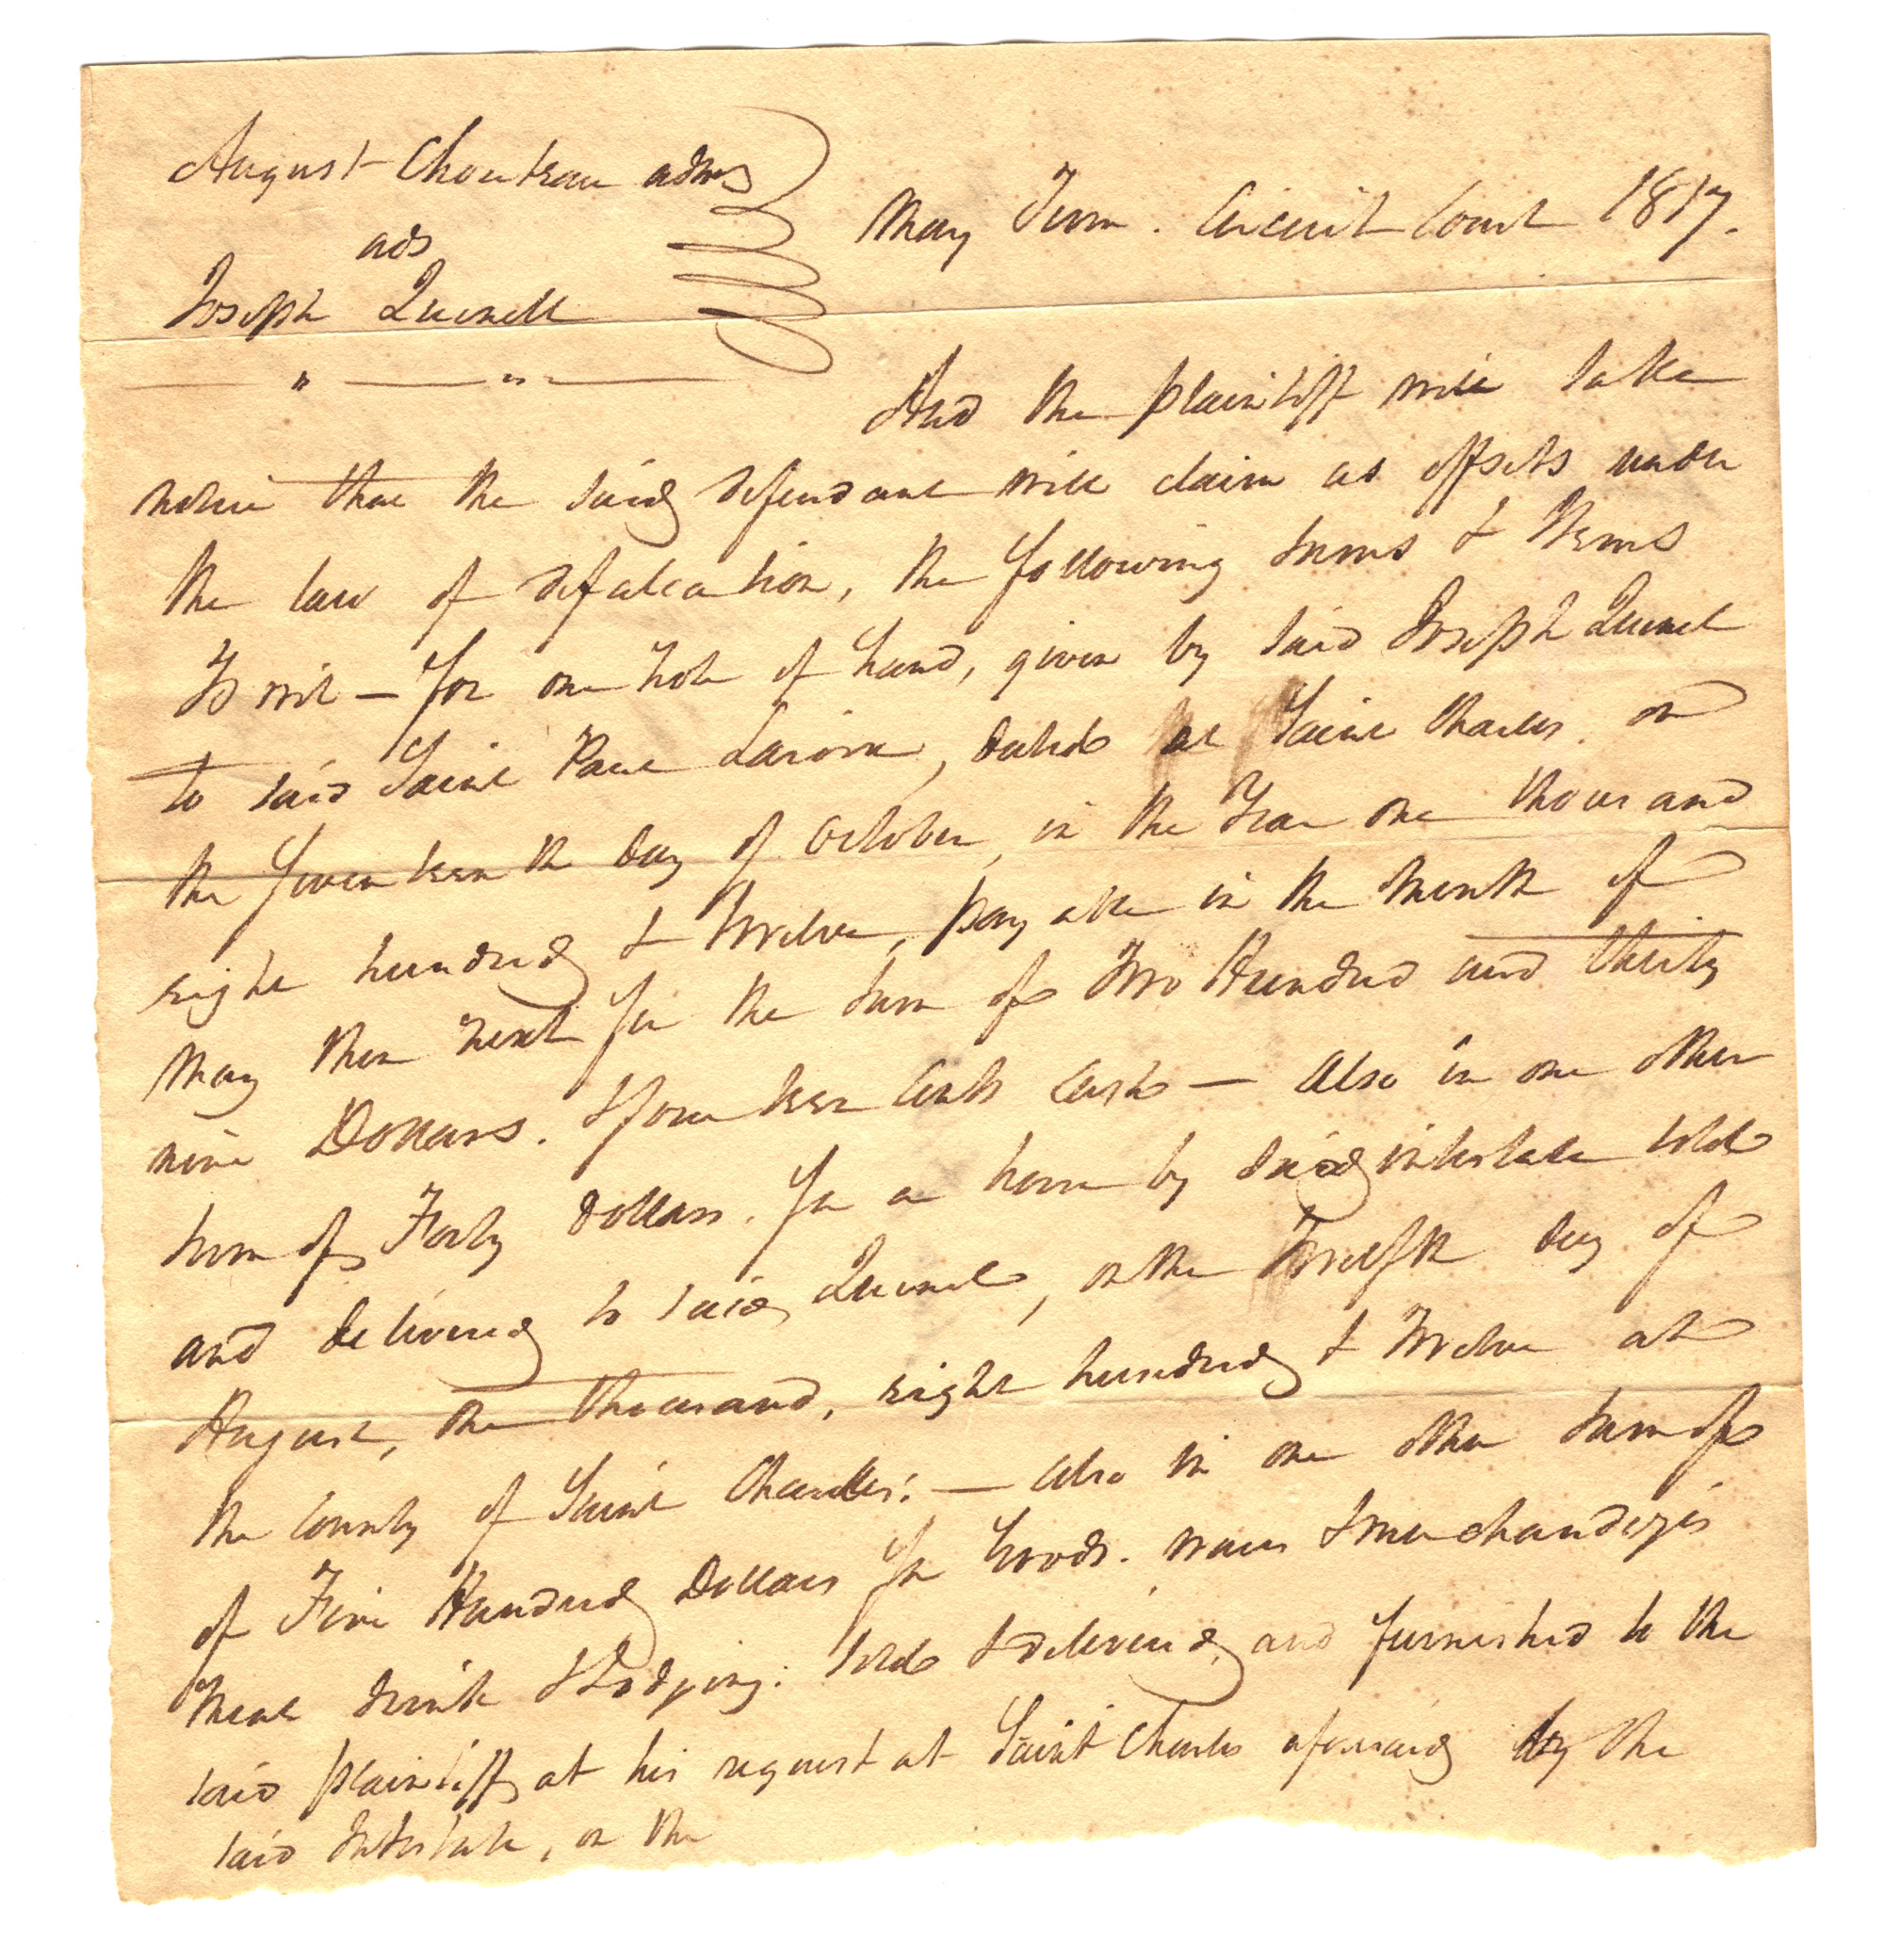 August Chouteau admr
ads
Joseph Quenell
May Term. Circuit Court 1817.
And the plaintiff will take
notice that the said defendant will claim as offsets under
the law of defalcation, the following sums & Items
To wit — for one note of hand, given by said Joseph Quenel
to said Saint Paul Lacroix, dated at Saint Charles. on
the Seventeenth day of October, in the Year one thousand
eight hundred & twelve, payable in the month of
May then next for the sum of Two Hundred and thirty
nine Dollars. & fourteen Cents Cash — Also in one other
sum of Forty dollars. for a horse by said intestate sold
and delivered to said Quenel, on the Twelfth day of
August, one thousand, eight hundred & Twelve at
the County of Saint Charles: — also in one other sum of
of Five Hundred Dollars for Goods. wares & merchandizes
Meat drink & Lodging: sold & delivered, and furnished to the
said plaintiff, at his request at Saint Charles aforesaid by the
said Intestate, on the